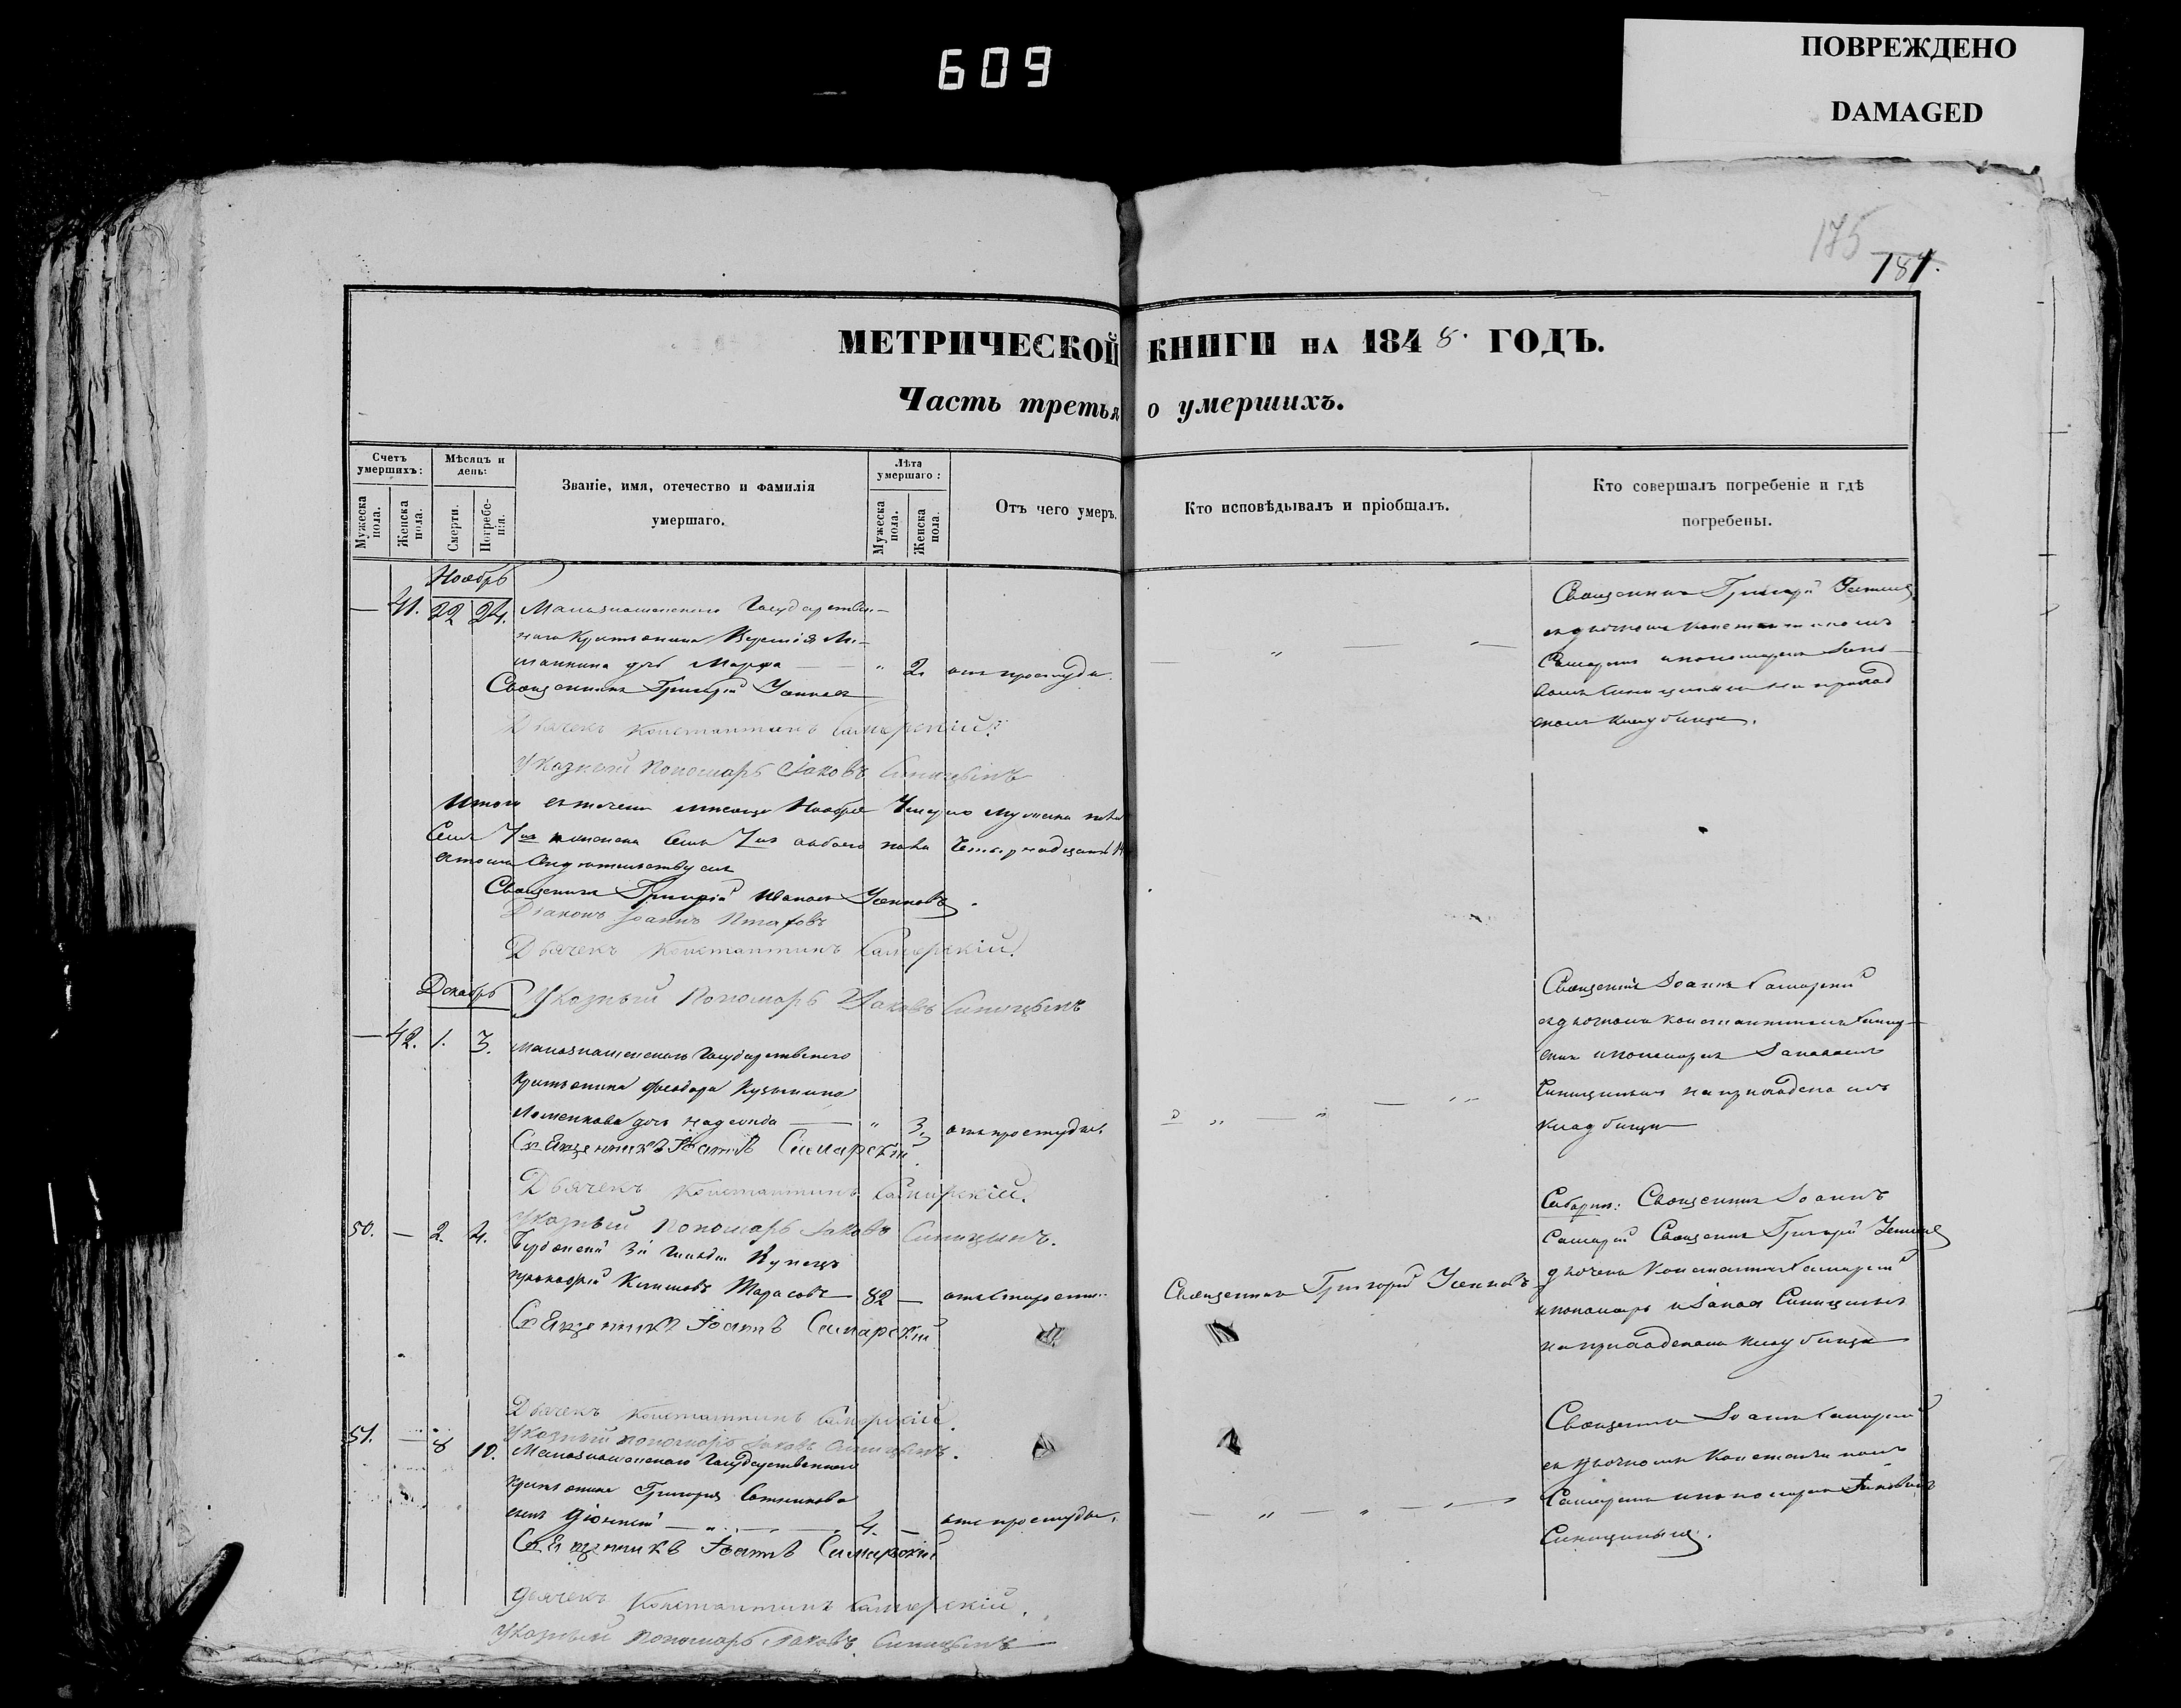 609
ПОВРЕЖДЕНО
DAMAGED
175
181.
МЕТРИЧЕСКОЙ КНИГИ НА 1848. ГОДЪ.
Часть третья о умершихъ.
Счетъ умершихъ:
Мужеска пола.
Женска пола.
Мѣсяцъ и день:
Смерти.
Погребенія.
Званіе, имя, отечество и фамилія
умершаго.
Лѣта умершаго:
Мужеска пола.
Женска пола.
Отъ чего умеръ.
Кто исповѣдывалъ и пріобщалъ.
Кто совершалъ погребеніе и гдѣ
погребены.
Ноябрь
— 41. 22 24. Государствен-
наго крестьянина
дчь Марфа — " 2. отъ простуды.
Священникъ Григорій
Дьячекъ Константинъ Самарскій
Указный Пономарь Іаковъ Синицынъ
Священникъ Григорій
съ дьячкомъ Константиномъ
Самарскимъ и пономаремъ
Синицынымъ на приход
скомъ кладбищѣ.
Итого въ теченіи мѣсяца Ноября мужеска пола
Семь 7 женска Семь 7 обоего пола Четырнадцать 14
въ томъ свидѣтельствуемъ
Священникъ Григорій Ивановъ
Діаконъ Іоаннъ
Дьячекъ Константинъ Самарскій
Указный Пономарь Іаковъ Синицынъ
Декабрь
— 42. 1. 3. Государственнаго
крестьянина Феодора Кузьмина
дочь Надежда — " 3. отъ простуды.
Священникъ Іоаннъ Самарскій
Дьячекъ Константинъ Самарскій.
Указный Пономарь Іаковъ Синицынъ.
Священникъ Іоаннъ Самарскій
съ дьячкомъ Константиномъ Самар-
скимъ и пономаремъ Іаковомъ
Синицынымъ на приходскомъ
кладбищѣ
50. — 2. 4. 3й Гильдіи Купецъ
Тарасовъ 82 — отъ старости.
Священникъ Іоаннъ Самарскій
Дьячекъ Константинъ Самарскій.
Указный пономарь Іаковъ Синицынъ.
Священникъ Григорій
Соборне: Священникъ Іоаннъ
Самарскій Священникъ Григорій
дьячекъ Константинъ Самарскій
и пономарь Іаковъ Синицынъ
на приходскомъ кладбищѣ
51. — 8 10. Государственнаго
крестьянина Григорія
сынъ 4. — отъ простуды.
Священникъ Іоаннъ Самарскій
Дьячекъ Константинъ Самарскій.
Указный Пономарь Іаковъ Синицынъ
Священникъ Іоаннъ Самарскій
съ дьячкомъ Константиномъ
Самарскимъ и пономаремъ Іаковомъ
Синицынымъ.